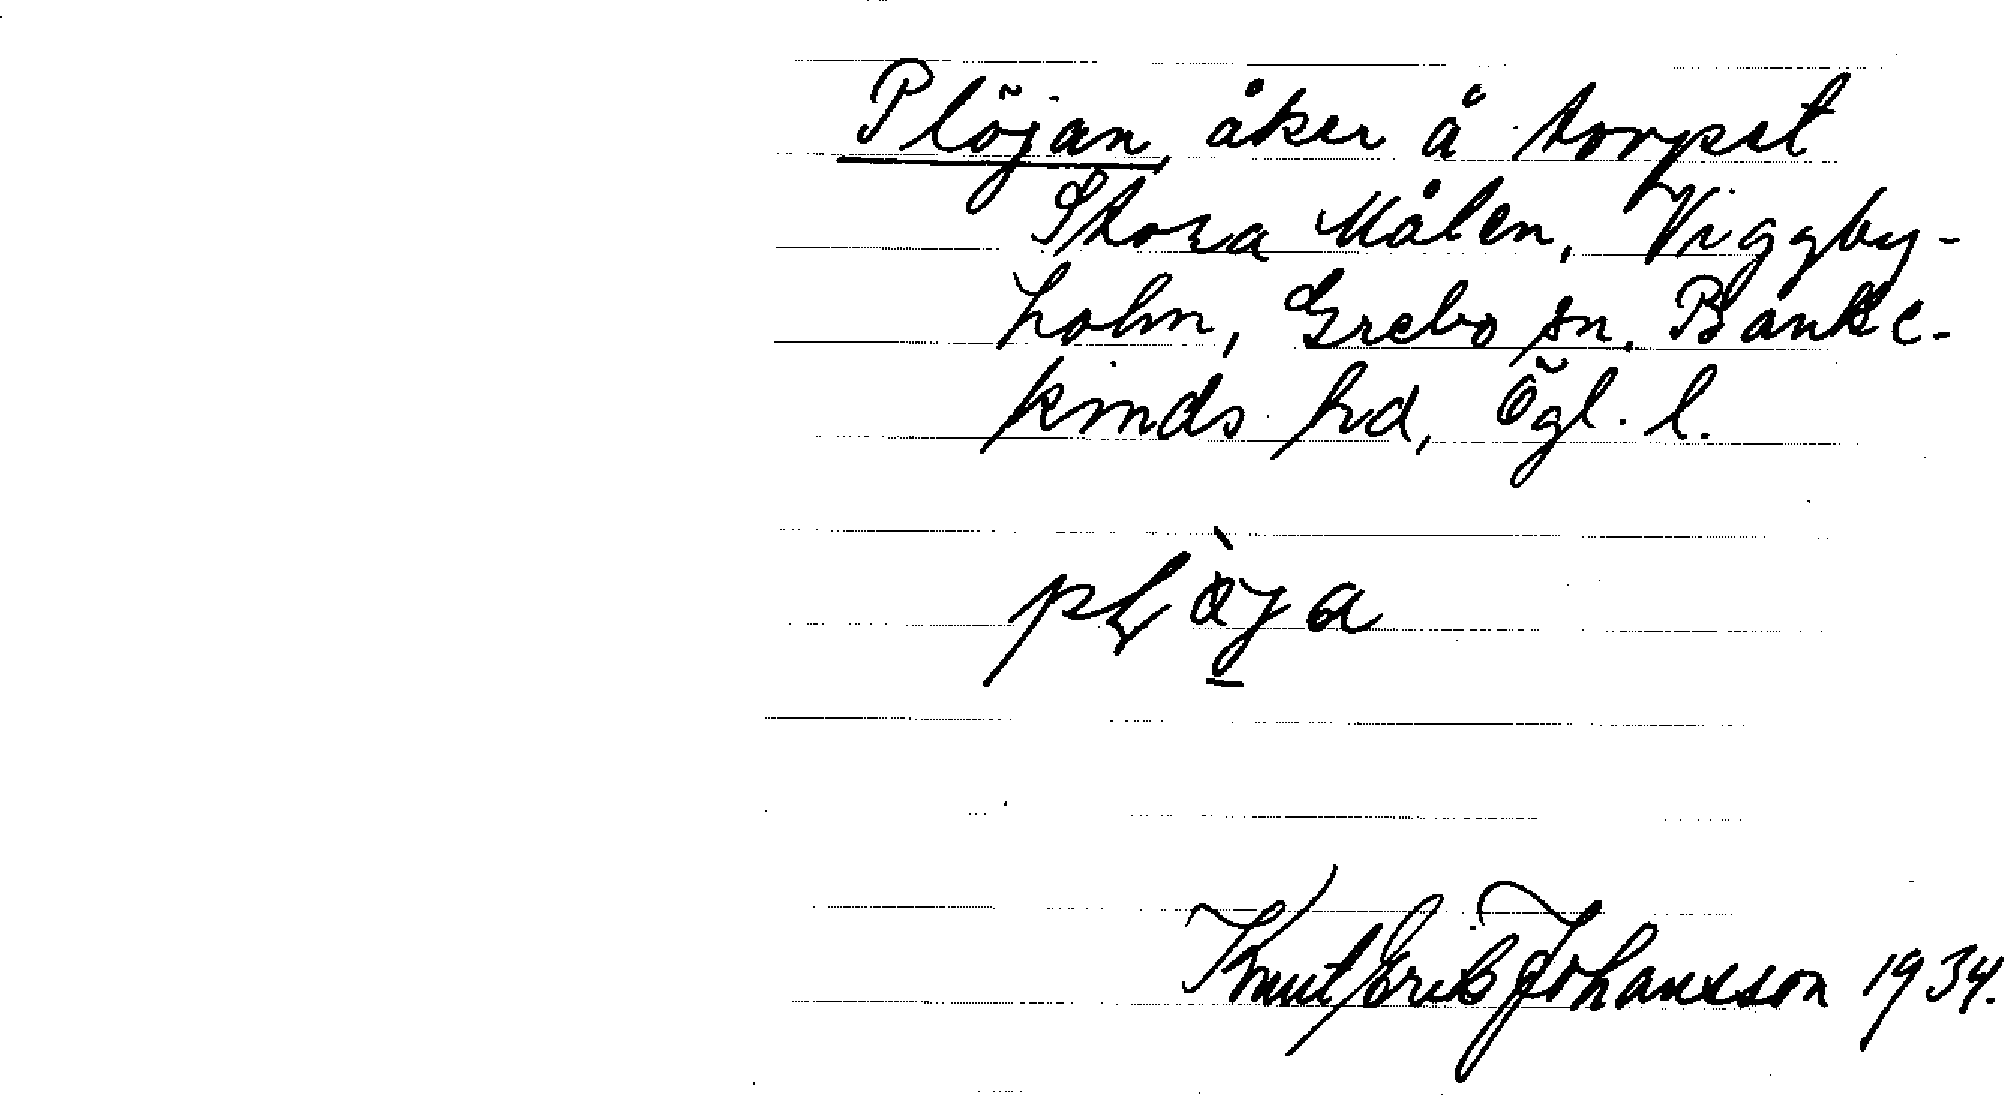 Plöjan, åker å torpet
Stora Målen, Viggby-
holm, Grebo sn. Banke-
kinds hd, Ögl. l.
Knut Erik Johansson 1934.